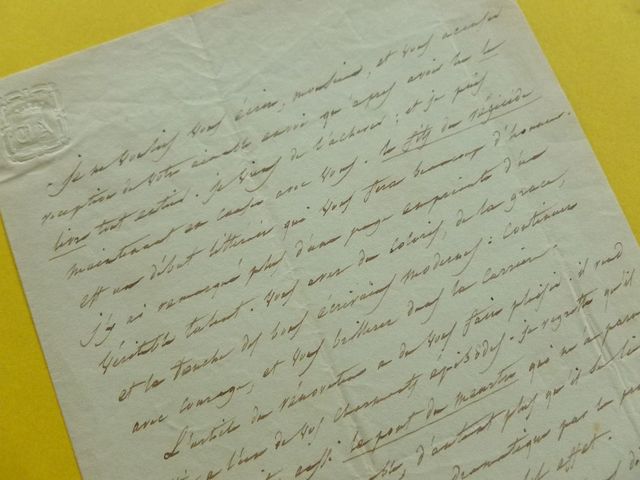 Je ne voulais vous écrire, monsieur, et vous accuser
réception de votre aimable envoi qu'après avoir lu le
livre tout entier. je viens de l'achever; et je puis
maintenant en causer avec vous. le fils du régicide
est un début littéraire qui vous fera beaucoup d'honneur.
J'y ai remarqué plus d'une page empreinte d'un
véritable talent. vous avez du coloris, de la grace,
et la touche des bons écrivains modernes: continuez
avec courage, et vous brillerez dans la carrière.
L'article du rénovateur a dû vous faire plaisir: il rend
l'un de vos charmants épisodes. je regrette qu'il
aussi le pont du meurtre qui m'a paru
d'autant plus qu'il
dramatique par le
effet.